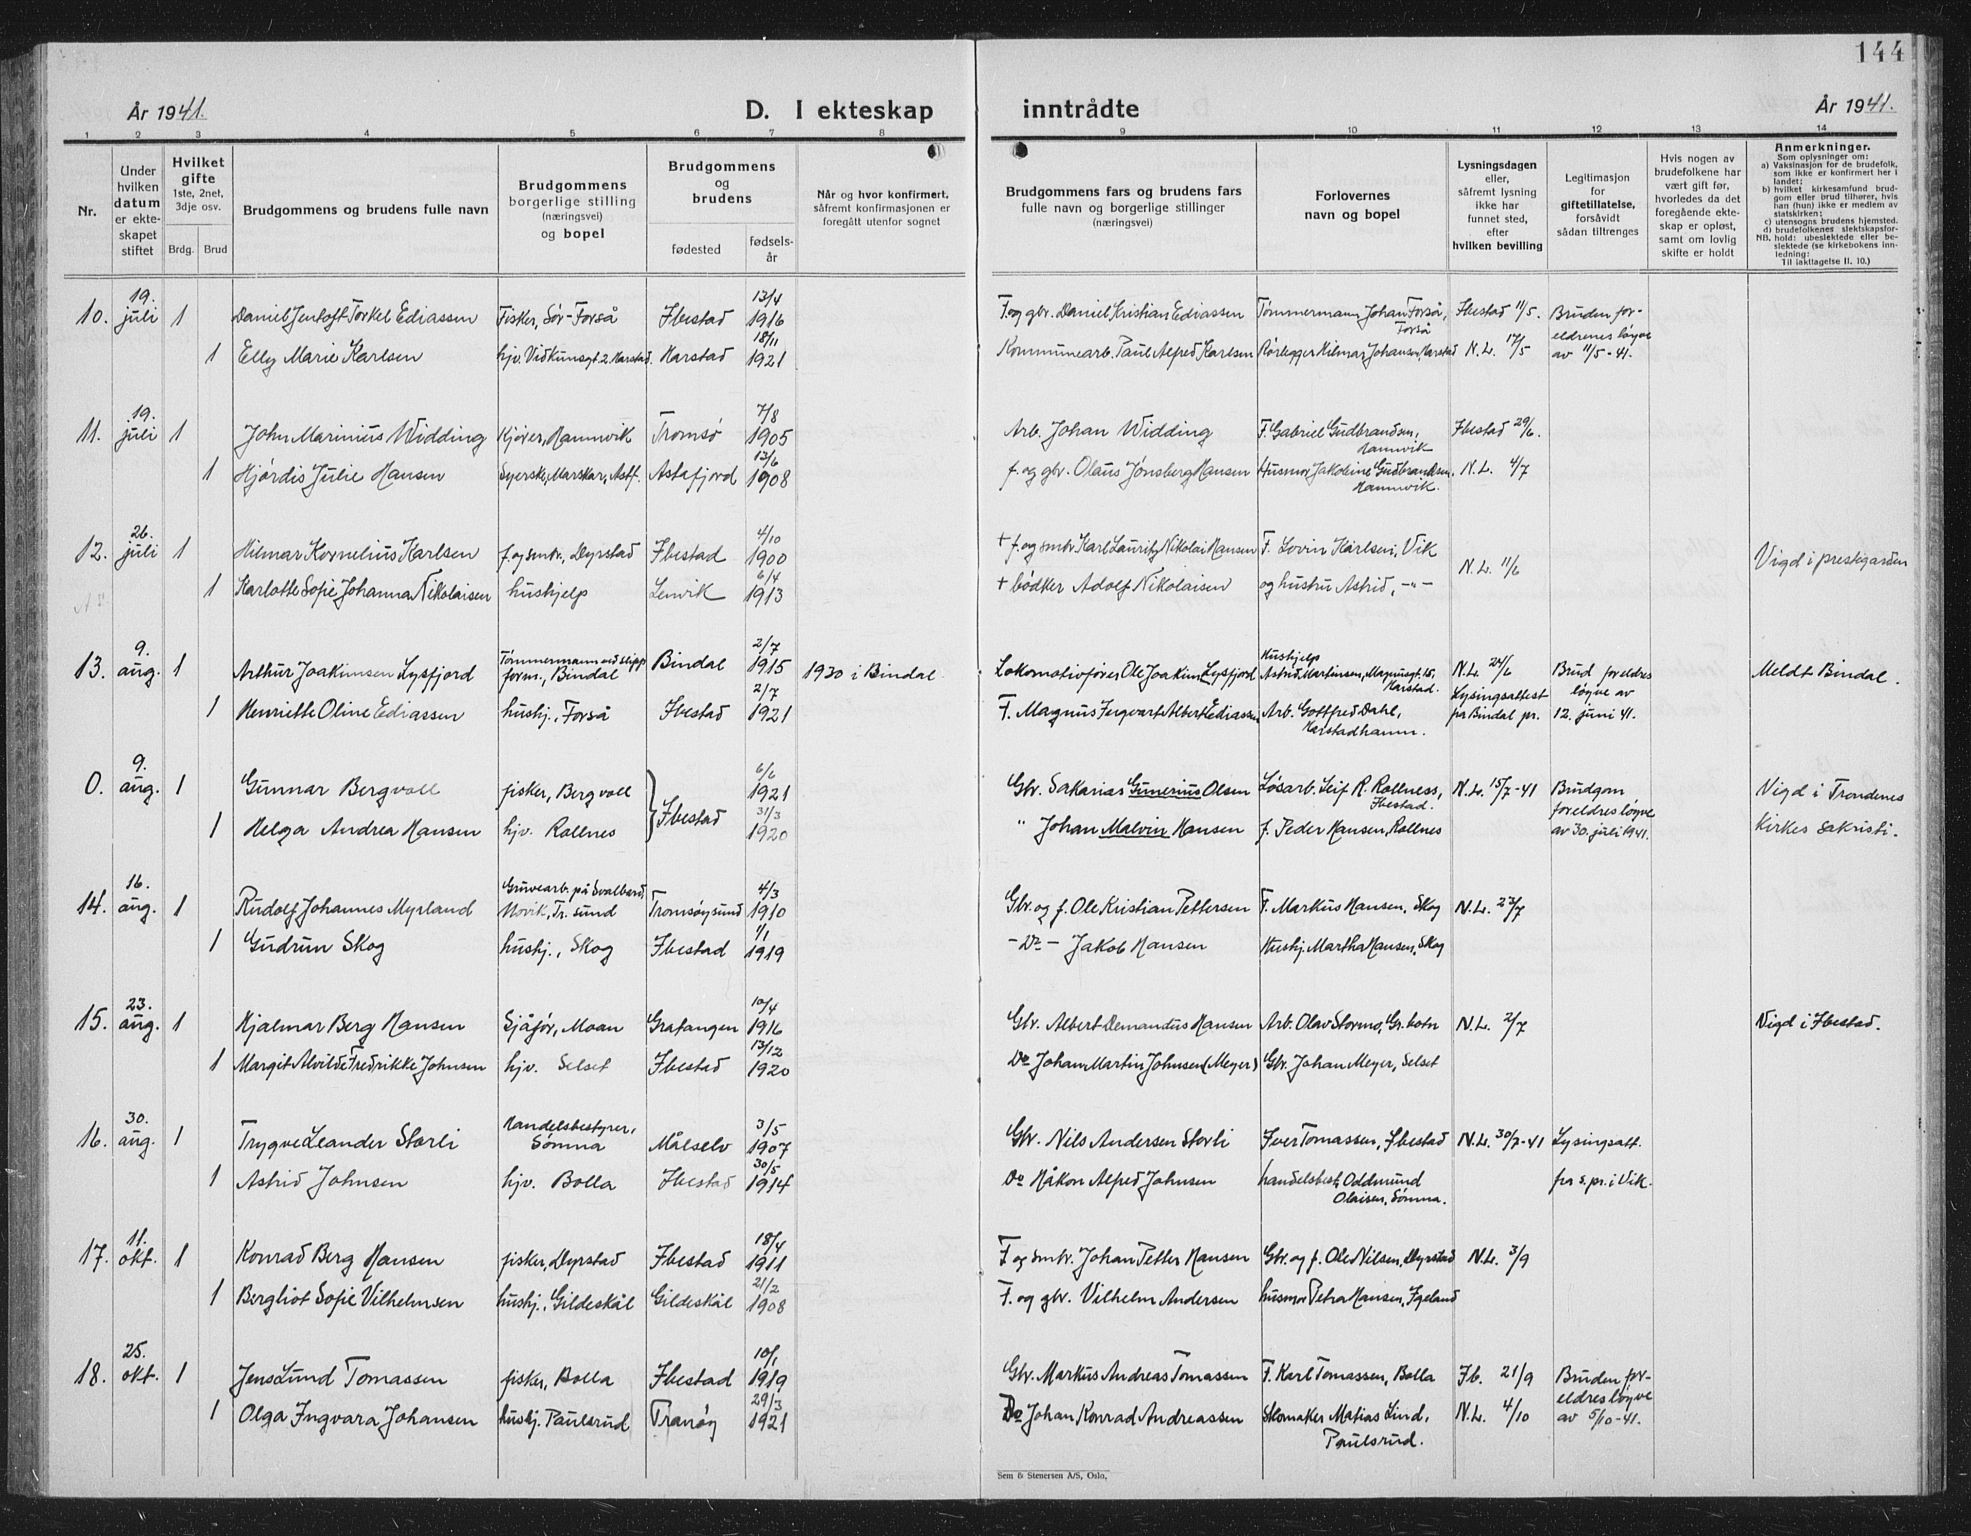 144
År 1941.
D. I ekteskap inntrådte
År 1941.
1 2 3 4 5 6 7 8 9 10 11 12 13 14
Nr.
Under hvilken datum er ekteskapet stiftet
Hvilket gifte
1ste, 2net, 3dje osv.
Brdg. Brud
Brudgommens og brudens fulle navn
Brudgommens borgerlige stilling (næringsvei) og bopel
Brudgommens og brudens
fødested
fødselsår
Når og hvor konfirmert, såfremt konfirmasjonen er foregått utenfor sognet
Brudgommens fars og brudens fars fulle navn og borgerlige stillinger (næringsvei)
Forlovernes navn og bopel
Lysningsdagen eller, såfremt lysning ikke har funnet sted, efter hvilken bevilling
Legitimasjon for giftetillatelse, forsåvidt sådan tiltrenges
Hvis nogen av brudefolkene har vært gift før, hvorledes da det foregående ekteskap er opløst, samt om lovlig skifte er holdt
Anmerkninger.
Som oplysninger om:
a) Vaksinasjon for de brudefolk, som ikke er konfirmert her i landet;
b) hvilket kirkesamfund brudgom eller brud tilhører, hvis han (hun) ikke er medlem av statskirken;
c) utensogns brudens hjemsted.
d) brudefolkenes slektskapsforhold: ubeslektede eller beslektede (se kirkebokens innledning:
NB.
Til iakttagelse II. 10.)
10. 19. juli 1 Daniel Jentoft Torkel Ediassen Fisker, Sør-Forså Ibestad 13/4 1916 F. og gbr. Daniel Kristian Ediassen Tømmermann Johan Forså, Forså Ibestad 11/5. Bruden foreldrenes løyve av 11/5-41.
1 Elly Marie Karlsen hjv. Vidkunsgt. 2 Harstad. Harstad 18/11 1921 Kommunearb. Paul Alfred Karlsen Rørlegger Hilmar Johansen, Harstad N.L. 17/5
11. 19. juli 1 John Marinius Widding Kjører, Hamnvik Tromsø 7/8 1905 Arb. Johan Widding F. Gabriel Gudbrandsen, Hamnvik Ibestad 29/6.
1 Hjørdis Julie Hansen Syerske, Marskar, Astf. Astafjord 13/6 1908 f. og gbr. Olaus Jønsberg Hansen Husmor Jakobine Gudbrandsen, Hamnvik. N.L. 4/7
12. 26. juli 1 Hilmar Kornelius Karlsen f. og smbr., Dyrstad Ibestad 4/10 1900 + f. og smbr. Karl Lauritz Nikolai Hansen F. Lovin Karlsen, Vik N.L. 11/6 Vigd i prestegarden
1 Karlotte Sofie Johanna Nikolaisen hushjelp Lenvik 6/4 1913 + bødker Adolf Nikolaisen og hustru Astrid, -"-
13. 9. aug. 1 Arthur Joakimsen Lysfjord Tømmermann ved slipp form., Bindal Bindal 2/7 1915 1930 i Bindal Lokomotivfører Ole Joakim Lysfjord Hushjelp Astrid Martinsen, Magnusgt. 15, Harstad. N.L. 24/6 Brud foreldres løyve av 12. juni 41. Meldt Bindal.
1 Henriette Oline Ediassen hushj., Forså Ibestad 2/7 1921 F. Magnus Ingvart Albert Ediassen Arb. Gottfred Dahl, Harstadhamn. Lysingsattest fra Bindal pr.
0. 9. aug. 1 Gunnar Bergvoll fisker, Bergvoll } Ibestad 6/6 1921 Gbr. Sakarias Gunerius Olsen Løsarb. Leif R. Rollness, Ibestad. N.L. 15/7-41 Brudgom foreldres løyve av 30. juli 1941. Vigd i Trondenes kirkes sakristi.
1 Helga Andrea Hansen hjv. Rollnes 31/3 1920 " Johan Malvin Hansen f. Peder Hansen, Rollnes
14. 16. aug. 1 Rudolf Johannes Myrland Gruvearb. på Svalbard, Movik, Tr.sund Tromsøysund 4/3 1910 Gbr. og f. Ole Kristian Pettersen F. Markus Hansen, Skog N.L. 23/7
1 Gudrun Skog hushj., Skog Ibestad 1/1 1919 -Do- Jakob Hansen Hushj. Martha Hansen, Skog
15. 23. aug. 1 Hjalmar Berg Hansen Sjåfør, Moan Gratangen 10/4 1916 Gbr. Albert Demantus Hansen Arb. Olav Stormo, Gr.botn N.L. 2/7 Vigd i Ibestad.
1 Margit Alvilde Fredrikke Johnsen hjv. Selset Ibestad 13/12 1920 Do Johan Martin Johnsen (Meyer) Gbr. Johan Meyer, Selset
16. 30. aug. 1 Trygve Leander Storli Handelsbestyrer, Sømna Målselv 3/5 1907 Gbr. Nils Andersen Storli Iver Tomassen, Ibestad N.L. 30/7-41 Lysingsatt.
1 Astrid Johnsen hjv. Bolla Ibestad 30/5 1914 Do Håkon Alfred Johnsen handelsbest. Oddmund Olaisen, Sømna. fra s.pr. i Vik.
17. 11. okt. 1 Konrad Berg Hansen fisker, Dyrstad Ibestad 18/4 1911 F. og smbr. Johan Petter Hansen Gbr. og f. Ole Nilsen, Dyrstad N.L. 3/9
1 Bergliot Sofie Vilhelmsen hushj., Gildeskål Gildeskål 21/2 1908 F. og gbr. Vilhelm Andersen husmor Petra Hansen, Igeland
18. 25. okt. 1 Jens Lund Tomassen fisker, Bolla Ibestad 10/1 1919 Gbr. Markus Andreas Tomassen F. Karl Tomassen, Bolla Ib. 21/9 Bruden foreldres løyve av 5/10-41.
1 Olga Ingvara Johansen hushj. Paulsrud Tranøy 29/3 1921 Do Johan Konrad Andreassen Skomaker Matias Lind, Paulsrud. N.L. 4/10
Sem & Stenersen A/S, Oslo.